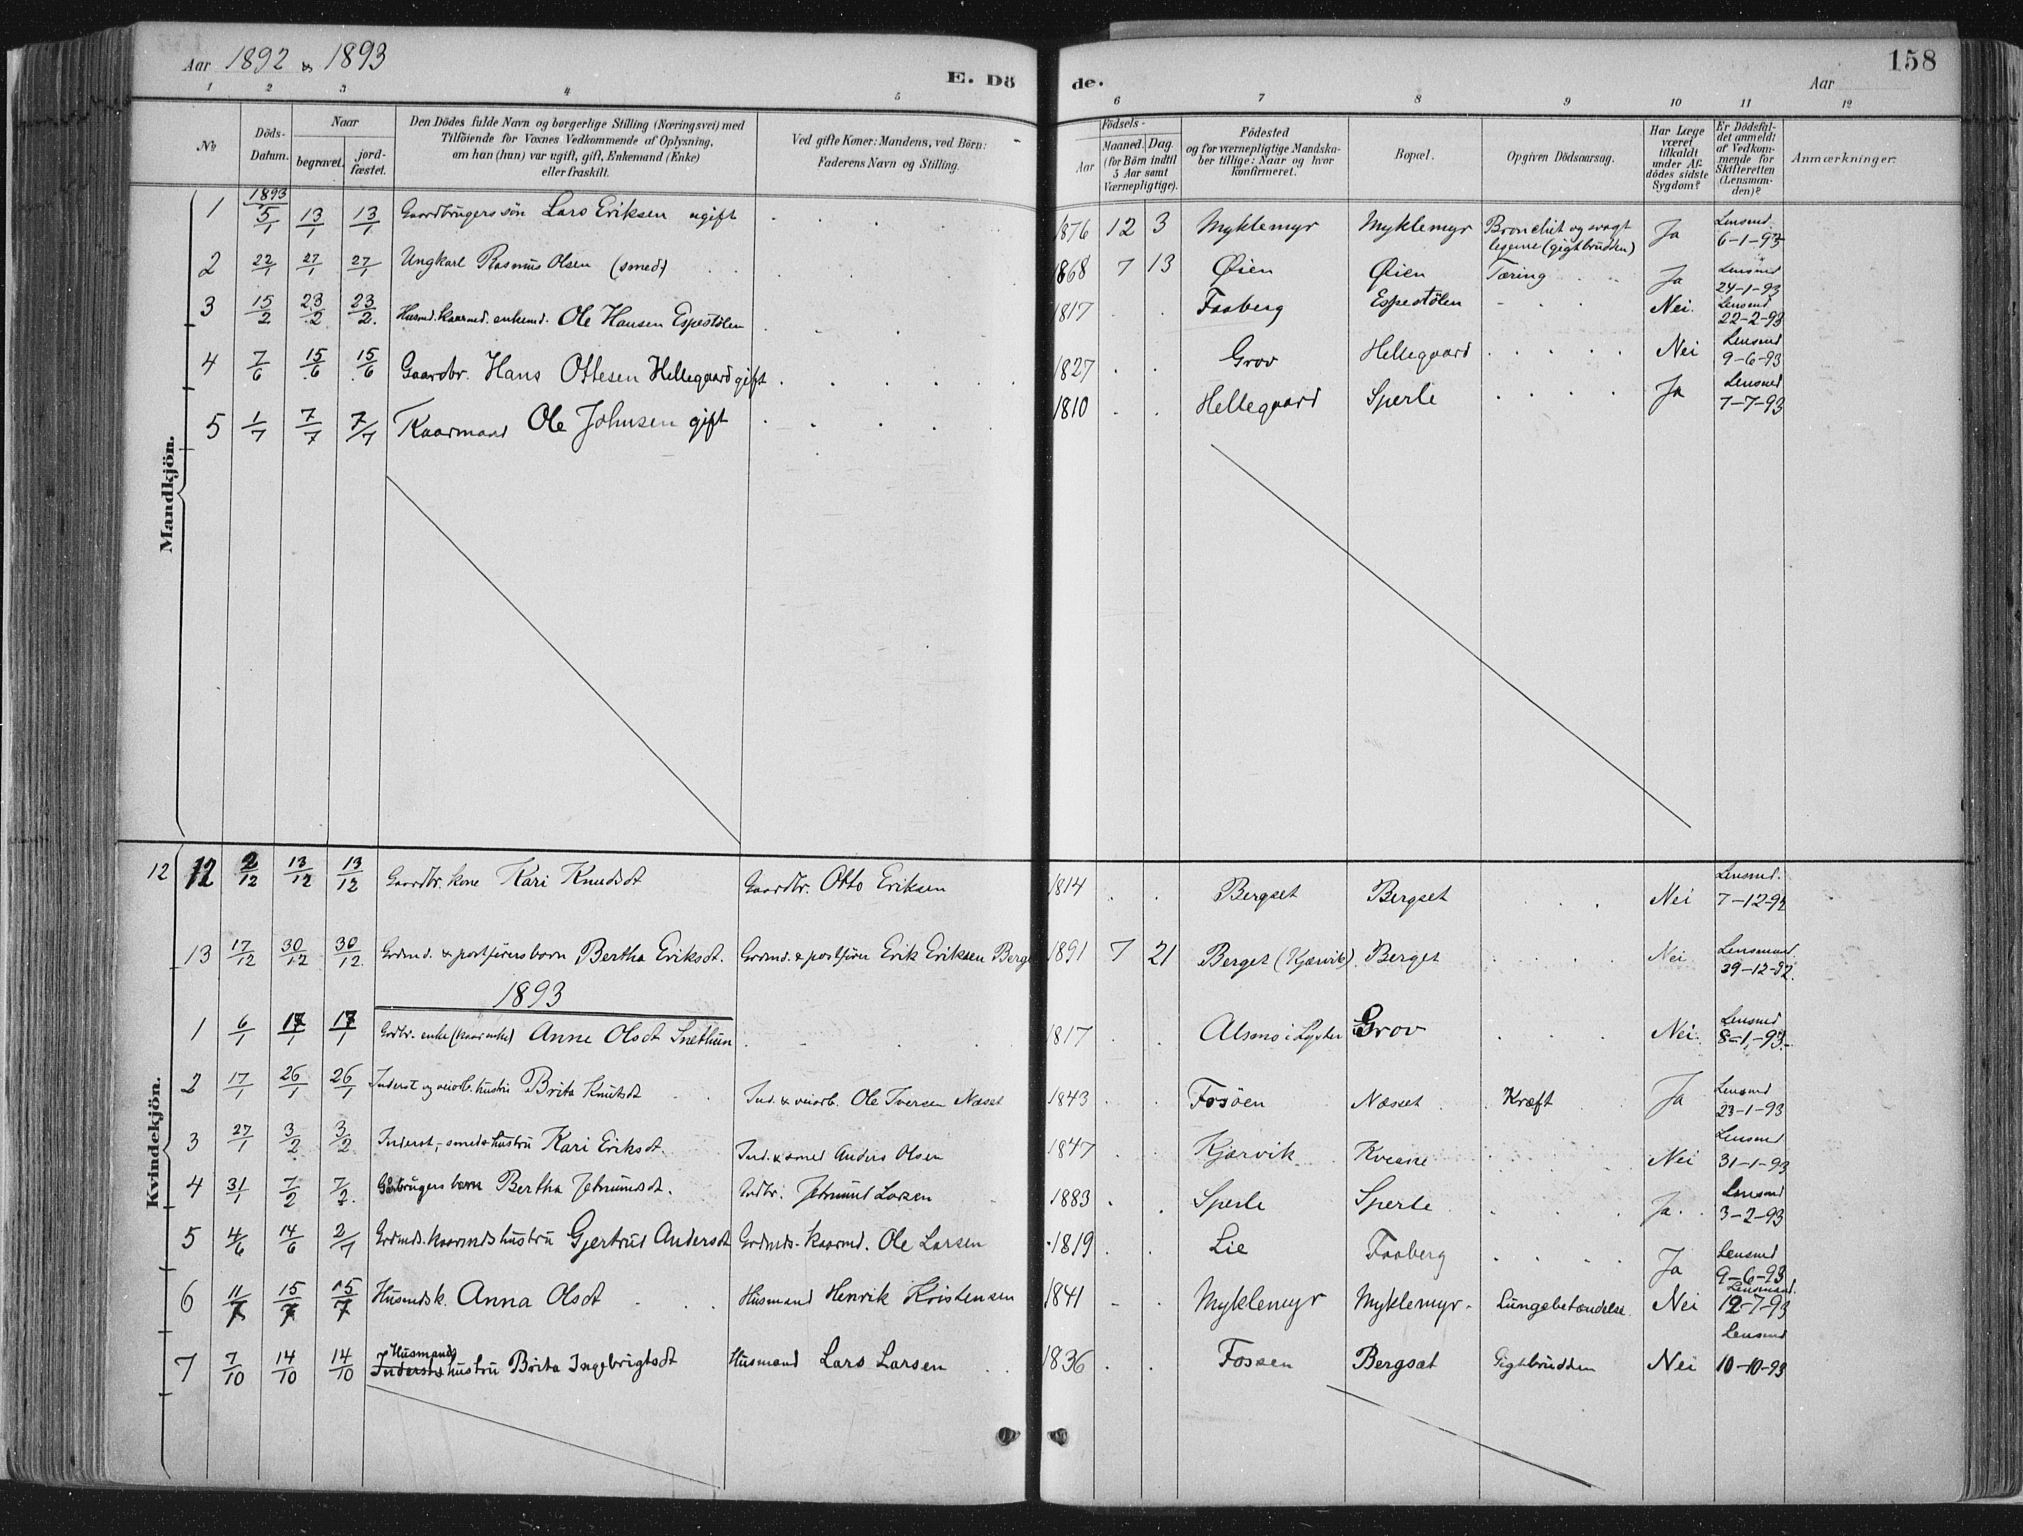 Aar 1892 & 1893 E. Dö de. Aar 158
1 2 3 4 5 6 7 8 9 10 11 12
No Döds-Datum. Naar begravet. jordfæstet. Den Dödes fulde Navn og borgerlige Stilling (Næringsvei) med Tilföiende for Voxnes Vedkommende af Oplysning, om han (hun) var ugift, gift, Enkemand (Enke) eller fraskilt. Ved gifte Koner: Mandens, ved Börn: Faderens Navn og Stilling. Födsels- Aar Maaned. Dag. (for Börn indtil 5 Aar samt Værnepligtige). Födested og for værnepligtige Mandskaber tillige: Naar og hvor konfirmeret. Bopæl. Opgiven Dödsaarsag. Har Læge været tilkaldt under Afdödes sidste Sygdom? Er Dödsfaldet anmeldt af Vedkommende for Skifteretten (Lensmanden)? Anmærkninger.
Mandkjön.
1 1893 5/1 13/1 13/1 Gaardbrugers sön Lars Eriksen ugift 1876 12 3 Myklemyr Myklemyr Bronchit og svagt legeme (gigtbrudden) Ja Lensmd. 6-1-93
2 22/1 27/1 27/1 Ungkarl Rasmus Olsen (smed) 1868 7 13 Øien Øien Tæring Ja Lensmd 24-1-93
3 15/2 23/2 23/2 Husmd. kaarmd. enkemd. Ole Hansen Espestölen 1817 Faaberg Espestölen Nei. Lensmd. 22-2-93
4 7/6 15/6 15/6 Gaardbr. Hans Ottesen Hellegaard gift 1827 Grov Hellegaard Nei Lensmd 9-6-93
5 1/7 7/7 7/7 Kaarmand Ole Johnsen gift 1810 Hellegaard Sperle Ja Lensmd 7-7-93
Kvindekjön.
12 12 2/12 13/12 13/12 Gaardbr. kone Kari Knudsdt Gaardbr. Otto Eriksen 1814 Bergset Bergset Nei Lensmd. 7-12-92
13 17/12 30/12 30/12 Grdmd. & postförers barn Bertha Eriksdt. Grdmd. & postförer Erik Eriksen Berge 1891 7 21 Berget (Kjærvik) Berget Nei Lensmand. 29-12-92.
1893
1 6/1 17/1 17/1 Grdbr. enke (kaarenke) Anne Olsdt Snethun 1817 Alsmo i Lyster Grov Nei Lensmd 8-1-93.
2 17/1 26/1 26/1 Inderst og veiarb. hustru Brita Knutsdt Ind. & veiarb. Ole Iversen Næset 1843 Fosöen Næsset Kræft Ja Lensmd 23-1-93
3 27/1 3/2 3/2 Inderst,- smeds hustru Kari Eriksdt. Ind. & smed Anders Olsen 1847 Kjærvik Kveane Nei Lensmd 31-1-93
4 31/1 7/2 7/2. Gdbrugers barn Bertha Jetmundsdt. Grdbr. Jetmund Larsen 1883 Sperle Sperle Ja. Lensmd 3-2-93
5 4/6 14/6 2/7 Grdmds. kaarmds hustru Gjertrud Andersdt Grdmds. kaarmd. Ole Larsen 1819 Lie Faaberg Ja Lensmd 9-6-93
6 11/7 15/7 15/7 Husmds k. Anna Olsdt Husmand Henrik Kristensen 1841 Myklemyr Myklemyr Lungebetændelse Nei Lensmand. 12-7-93
7 7/10 14/10 14/10 Husmands Inderst hustru Brita Ingebrigtsdt Husmand Lars Larsen 1836 Fossen Bergsæt Gigtbrudden Nei Lensmd 10-10-93